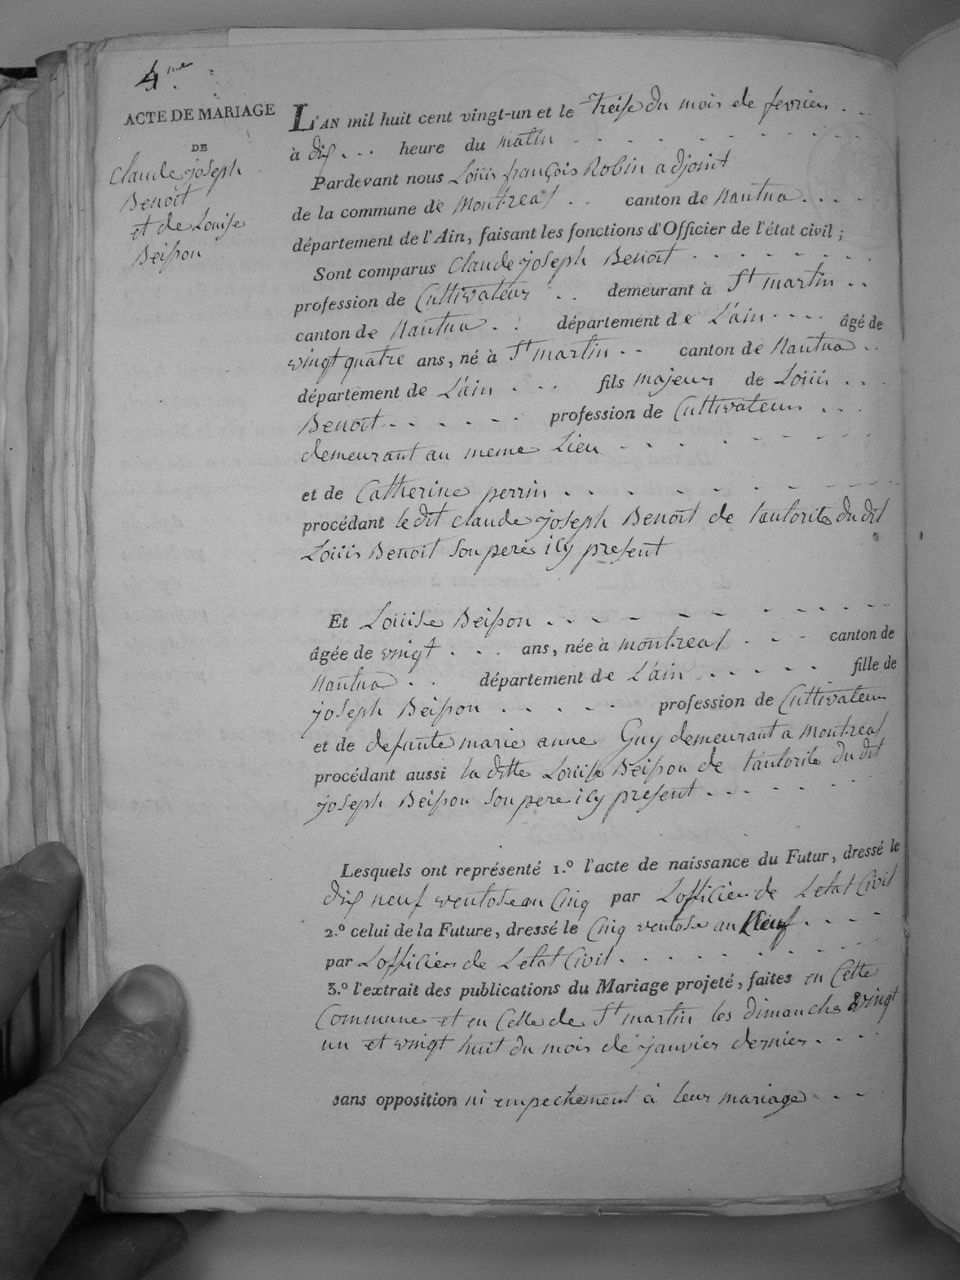 4.me
ACTE DE MARIAGE
DE
Claude joseph
Benoît
et de Louise
Beisson
L'AN mil huit cent vingt-un et le treise du mois de fevrier
à dix heure du matin
Pardevant nous Louis françois Robin adjoint
de la commune de Montreal canton de Nantua
département de l'Ain, faisant les fonctions d'Officier de l'état civil;
Sont comparus Claude joseph Benoît
profession de Cultivateur demeurant à St martin
canton de Nantua département de L'ain âgé de
vingt quatre ans, né à St martin canton de Nantua
département de L'ain fils majeur de Louis
Benoît profession de Cultivateur
demeurant au meme Lieu
et de Catherine perrin
procédant le dit Claude joseph Benoît de l'autorité du dit
Louis Benoît son pere icy present
Et Louise Beisson
âgée de vingt ans, née à montreal canton de
Nantua département de L'ain fille de
joseph Beisson profession de Cultivateur
et de defunte marie anne Guy demeurant a Montreal
procédant aussi la ditte Louise Beisson de l'autorité du dit
joseph Beisson son pere icy present
Lesquels ont représenté 1.º l'acte de naissance du Futur, dressé le
dix neuf ventose an Cinq par L'officier de L'etat Civil
2.º celui de la Future, dressé le Cinq ventose an Neuf
par L'officier de L'etat Civil
3.º l'extrait des publications du Mariage projeté, faites en Cette
Commune et en Celle de St martin les dimanche vingt
un et vingt huit du mois de janvier dernier
sans opposition ni empechement à leur mariage